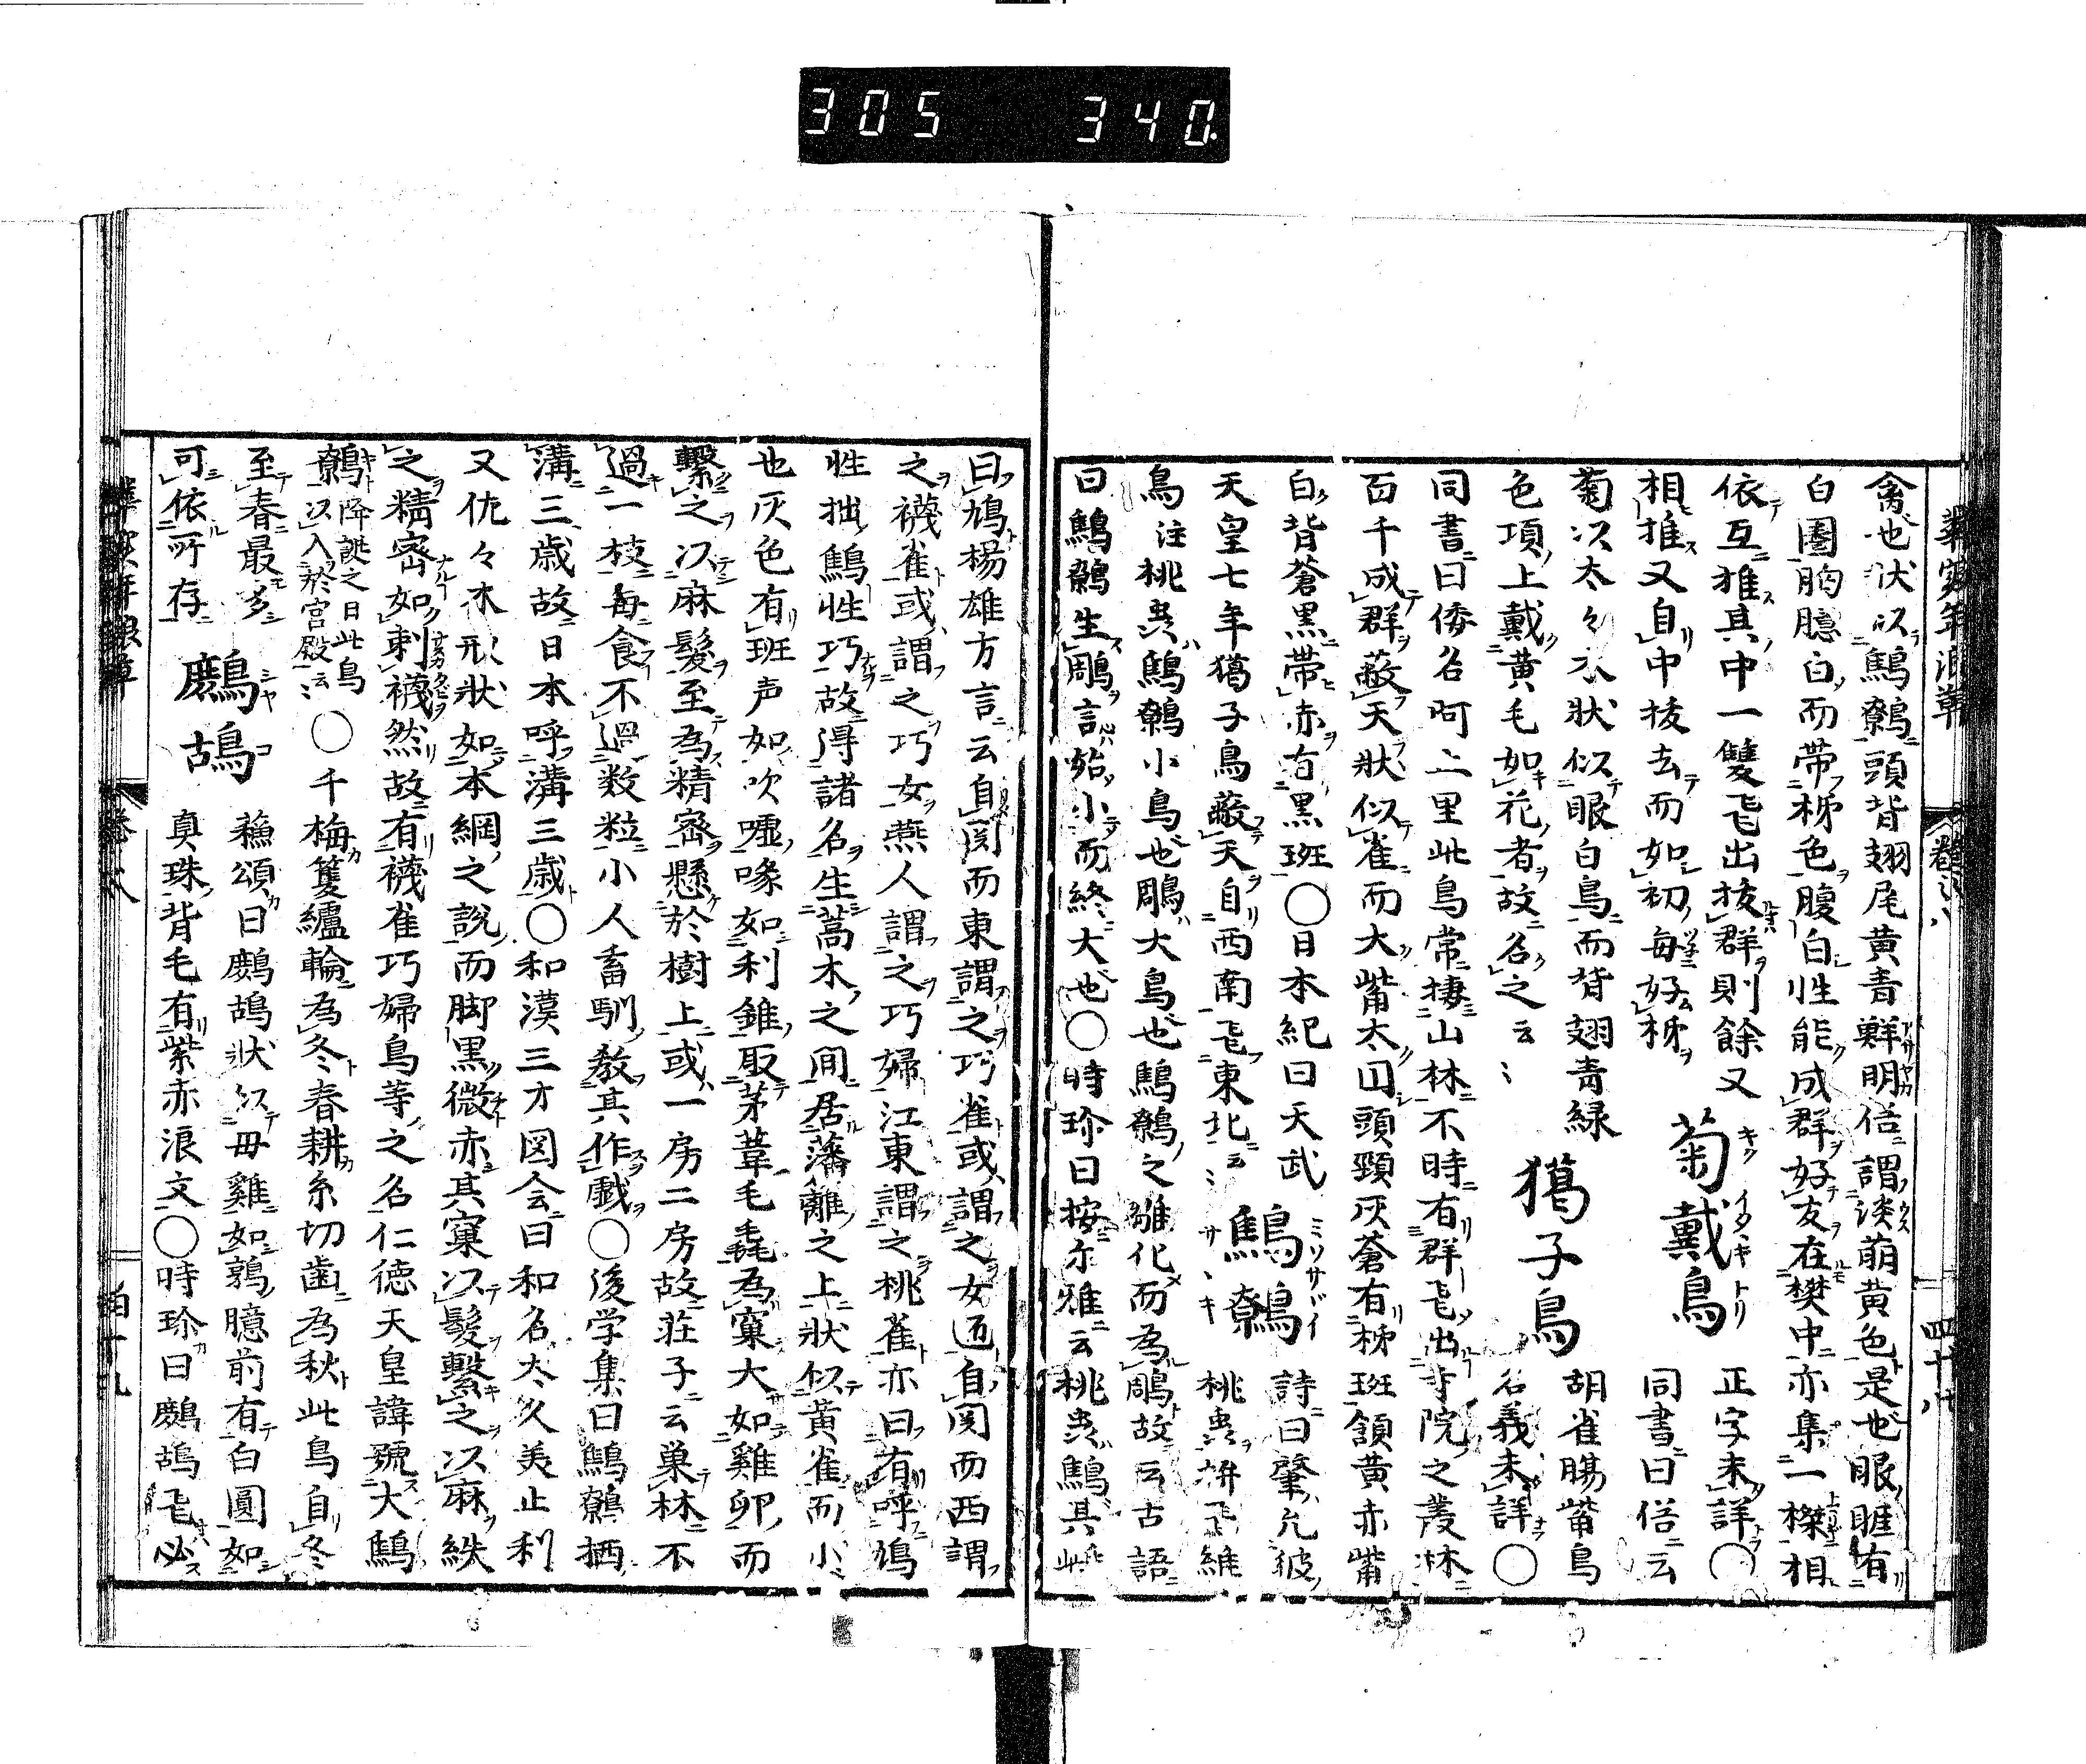 305 340.
禽也伏以鷦鷯頭背翅尾黄青鮮明俗謂淡萌黄色是也眼睚有
白圏胸臆白而帯柹色腹白性能成群好友在樊中亦集一櫸相
依互推其中一雙飛出抜群則餘又
相推又自中抜去而如初毎好柹
菊戴鳥
キクイタヽキトリ
正字未詳○
同書曰俗云
菊以太々木状似眼白鳥而背翅青緑
色項上戴黄毛如花者故名之云〻
獦子鳥
胡雀䏃觜鳥
名義未詳○
同書曰倭名阿二里此鳥常棲山林不時有群飛出寺院之叢林
百千成群蔽天状似雀而大觜太囗頭頸灰蒼有柹斑頷黄赤觜
白背蒼黒帯赤有黒斑○日本紀曰天武
天皇七年獦子鳥蔽天自西南飛東北云〻
鷦鷯
ミソサヾイ
サヽキ
詩曰肇允彼
桃虫拚飛維
鳥注桃虫鷦鷯小鳥也鵰大鳥也鷦鷯之雛化而為鵰故云古語
曰鷦鷯生鵰言始小而終大也○時珍曰按尓雅云桃虫鷦其
曰鳩楊雄方言云自関而東謂之巧雀或謂之女匠自関而西謂
之襪雀或謂之巧女燕人謂之巧婦江東謂之桃雀亦曰有呼鳩
性拙鷦性巧故得諸名生蒿木之間居藩離之上状似黄雀而小
也灰色有斑声如吹嘘喙如利錐取茅葦毛毳為窠大如雞卵而
繋之以麻髪至為精密懸於樹上或一房二房故荘子云巣林不
過一枝毎食不過数粒小人畜馴教其作戯○後学集曰鷦鷯栖
溝三歳故日本呼溝三歳○和漢三才図会曰和名太久美止利
又佐々木形状如本綱之説而脚黒微赤其窠以髪繋之以麻紩
之精密如刺襪然故有襪雀巧婦鳥等之名仁徳天皇諱號大鷦
鷯
降誕之日此鳥
以入於宮殿云〻
○千梅篗纑輪為冬春耕糸切歯為秋此鳥自冬
至春最多
可依所存
鷓鴣
シヤコ
蘓頌曰鷓鴣状似母雞如鶉臆前有白圓如
真珠背毛有紫赤浪文○時珍曰鷓鴣飛必
巻之八
四十八